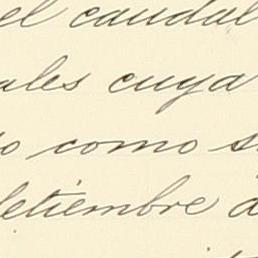 el caudal
ales cuya
o como s
etiembre d